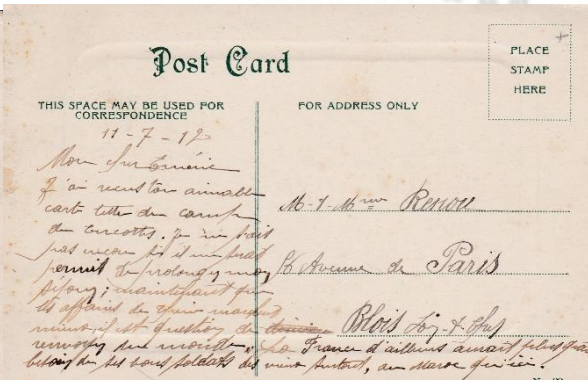 Post Card
PLACE
STAMP
HERE
THIS SPACE MAY BE USED FOR
CORRESPONDENCE
FOR ADDRESS ONLY
11-7-12
Mon cher
J'ai recu ton aimable
carte lettre du camp
de cercottes. Je ne sais
pas encore si il me sera
permit de prolonger mon
séjour; maintenant que
les affaires de
mieux, il est question de
renvoyer du monde, la France d'ailleurs aurait plus grand
besoin de ses bons soldats du surtout, au Maroc qu'ici.
M. & Mme Renou
Avenue de Paris
Blois Loir & Cher